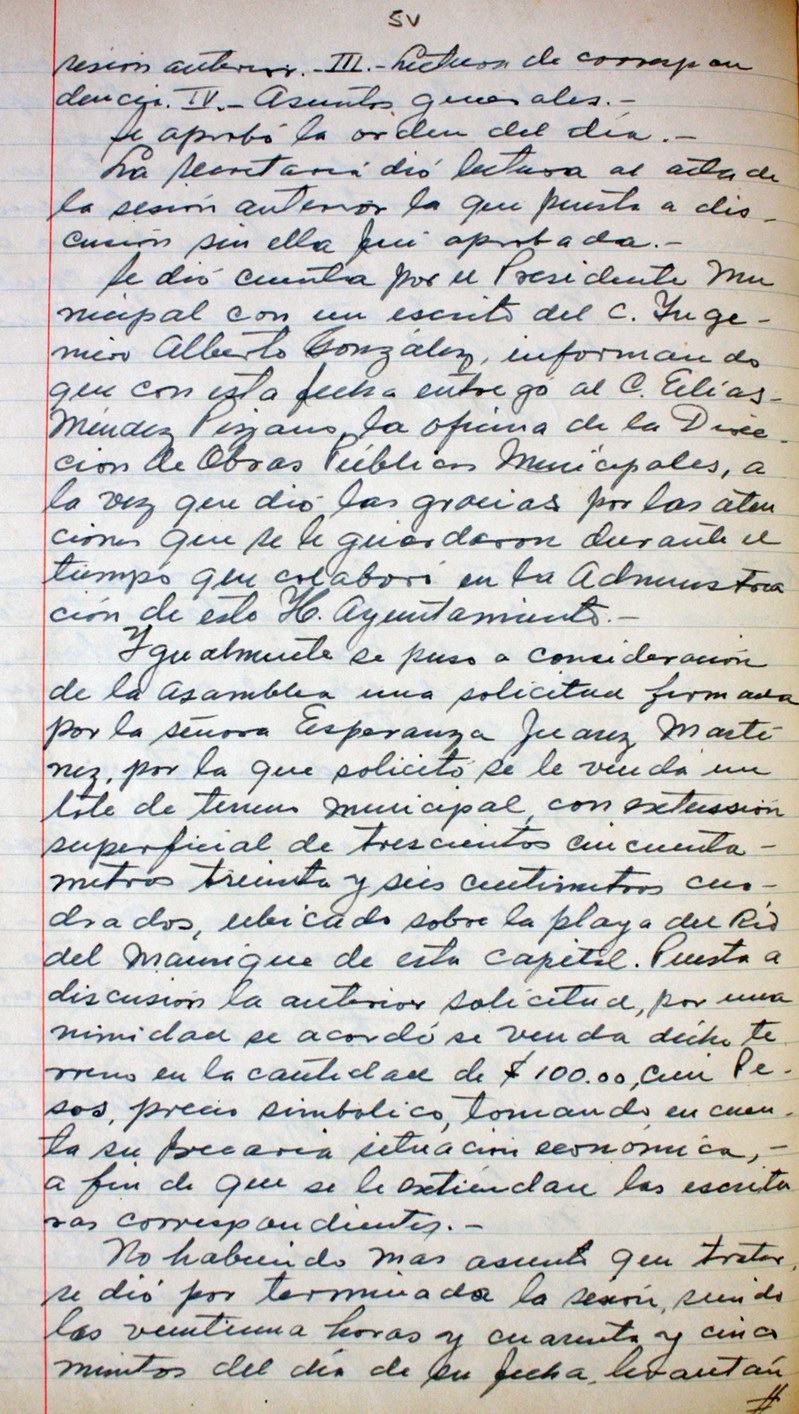 5v
sesión anterior.-III.-Lectura de correspon
dencia. IV.- Asuntos generales.-
Se aprobó la orden del día.-
La Secretaría dió lectura al acta de
la sesión anterior la que puesta a dis-
cusión sin ella fué aprobada.-
Se dió cuenta por el Presidente Mu
nicipal con un escrito del C. Inge-
niero Alberto González, informando
que con esta fecha entregó al C. Elías-
Méndez Pizano, la oficina de la Direc-
ción de Obras Públicas Municipales, a
la vez que dió las gracias por las aten
ciones que se le guardaron durante el
tiempo que colaboró en la Administra
ción de este H. Ayuntamiento.-
Igualmente se puso a consideración
de la Asamblea una solicitud firmada
por la señora Esperanza Juárez Martí
nez, por la que solicitó se le venda un
lote de terreno municipal, con extensión
superficial de trescientos cincuenta-
metros treinta y seis centímetros cua-
drados, ubicado sobre la playa del Río
del Manrique de esta capital. Puesta a
discusión la anterior solicitud, por una
nimidad se acordó se venda dicho te
rreno en la cantidad de $100.00, Cien Pe-
sos, precio simbólico, tomando en cuen-
ta su precaria situación económica,-
a fin de que se le extiendan las escritu
ras correspondientes.-
No habiendo mas asunto que tratar,
se dió por terminada la sesión, siendo
las veintiuna horas y cuarenta y cinco
minutos del día de su fecha, levantán
//